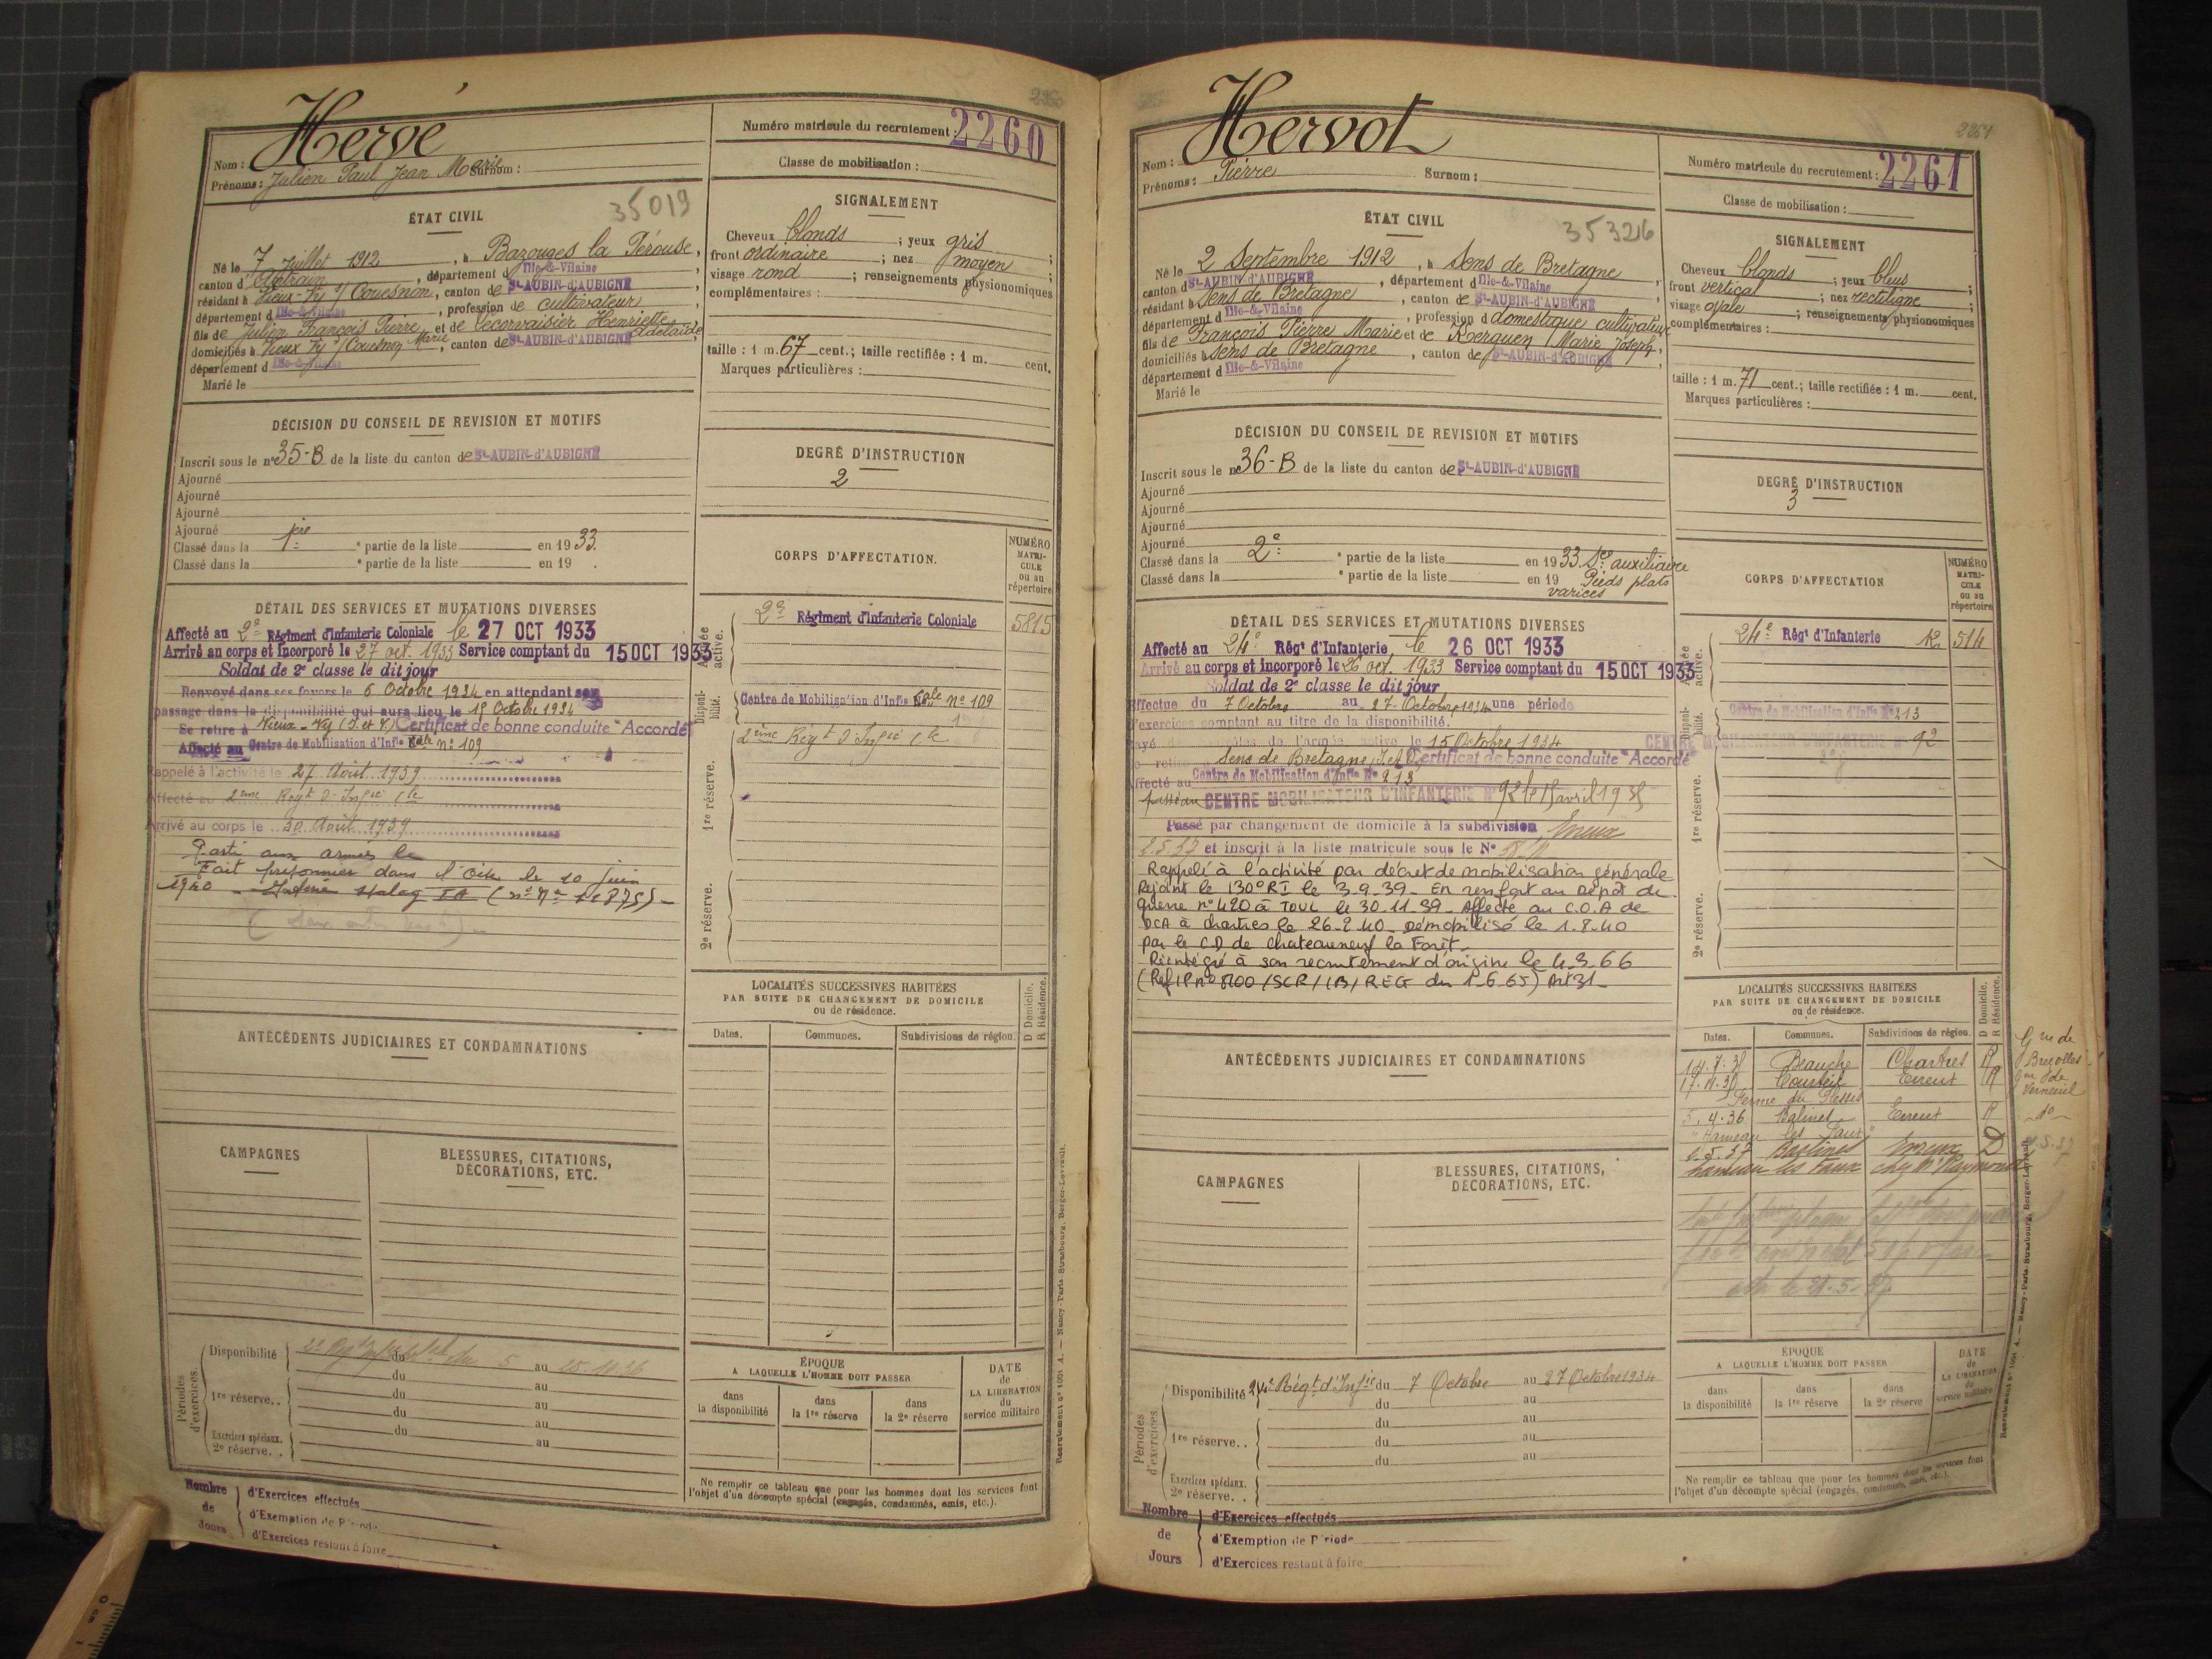 2260
Hervé
Nom :
Prénoms : Julien Paul Jean Marie Surnom :
Numéro matricule du recrutement : 2260
Classe de mobilisation :
ÉTAT CIVIL
35019
Né le 7 Juillet 1912, à Bazouges la Pérouse,
canton d'Antrain, département d Ille-&-Vilaine
résidant à Vieux-Vy s/ Couesnon, canton de St-AUBIN-d'AUBIGNÉ
département d Ille-&-Vilaine, profession de cultivateur
fils de Julien François Pierre et de Lecorvaisier Henriette Adélaïde
domiciliés à Vieux Vy s/ Couesnon Marie, canton de St-AUBIN-d'AUBIGNÉ
département d Ille-&-Vilaine
Marié le
SIGNALEMENT
Cheveux blonds ; yeux gris
front ordinaire ; nez moyen ;
visage rond ; renseignements physionomiques
complémentaires :
taille : 1 m. 67 cent.; taille rectifiée : 1 m. cent.
Marques particulières :
DÉCISION DU CONSEIL DE REVISION ET MOTIFS
Inscrit sous le n° 35-B de la liste du canton de St-AUBIN-d'AUBIGNÉ
Ajourné
Ajourné
Ajourné
Ajourné
Classé dans la 1re partie de la liste en 1933.
Classé dans la e partie de la liste en 19 .
DEGRÉ D'INSTRUCTION
2
CORPS D'AFFECTATION.
NUMÉRO MATRI-CULE ou au répertoire
Armée active.
2e Régiment d'Infanterie Coloniale 5815
Disponi-bilité.
Centre de Mobilisation d'Infie Cole n° 109
2ème Regt d'Infie Cle
1re réserve.
2e réserve.
DÉTAIL DES SERVICES ET MUTATIONS DIVERSES
Affecté au 2e Régiment d'Infanterie Coloniale le 27 OCT 1933
Arrivé au corps et incorporé le 27 oct. 1933 Service comptant du 15 OCT 1933
Soldat de 2e classe le dit jour
Renvoyé dans ses foyers le 6 Octobre 1934 en attendant son
passage dans la disponibilité qui aura lieu le 15 Octobre 1934
Se retire à Vieux-Vy (I. et V.) Certificat de bonne conduite "Accordé"
Affecté au Centre de Mobilisation d'Infie Cole n° 109
Rappelé à l'activité le 27 Août 1939
Affecté au 2ème Regt d'Infie Cle
Arrivé au corps le 30 Août 1939
Parti aux armées le
Fait prisonnier dans l'Oise le 10 juin
1940 - Interné Stalag
LOCALITÉS SUCCESSIVES HABITÉES
PAR SUITE DE CHANGEMENT DE DOMICILE
ou de résidence.
Dates. Communes. Subdivisions de région. D Domicile. R Résidence.
ANTÉCÉDENTS JUDICIAIRES ET CONDAMNATIONS
CAMPAGNES
BLESSURES, CITATIONS,
DÉCORATIONS, ETC.
Périodes d'exercices
Disponibilité du 5 au 25.10.36
du au
1re réserve.. du au
du au
Exercices spéciaux. 2e réserve. . du au
ÉPOQUE
A LAQUELLE L'HOMME DOIT PASSER
dans la disponibilité
dans la 1re réserve
dans la 2e réserve
DATE de LA LIBÉRATION du service militaire
Ne remplir ce tableau que pour les hommes dont les services font
l'objet d'un décompte spécial (engagés, condamnés, omis, etc.).
Nombre de Jours
d'Exercices effectués
d'Exemption de Période
d'Exercices restant à faire
Recrutement n° 1001 A. — Nancy-Paris-Strasbourg, Berger-Levrault.
2261
Hervot
Nom :
Prénoms : Pierre Surnom :
Numéro matricule du recrutement : 2261
Classe de mobilisation :
ÉTAT CIVIL
35326
Né le 2 Septembre 1912, à Sens de Bretagne
canton d St-AUBIN-d'AUBIGNÉ, département d Ille-&-Vilaine
résidant à Sens de Bretagne, canton de St-AUBIN-d'AUBIGNÉ
département d Ille-&-Vilaine, profession d domestique cultivateur
fils de François Pierre Marie et de Kerquen Marie Joseph,
domiciliés à Sens de Bretagne, canton de St-AUBIN-d'AUBIGNÉ
département d Ille-&-Vilaine
Marié le
SIGNALEMENT
Cheveux blonds ; yeux bleus
front vertical ; nez rectiligne ;
visage ovale ; renseignements physionomiques
complémentaires :
taille : 1 m. 71 cent.; taille rectifiée : 1 m. cent.
Marques particulières :
DÉCISION DU CONSEIL DE REVISION ET MOTIFS
Inscrit sous le n° 36-B de la liste du canton de St-AUBIN-d'AUBIGNÉ
Ajourné
Ajourné
Ajourné
Ajourné
Classé dans la 2e partie de la liste en 1933. Sce auxiliaire
Classé dans la e partie de la liste en 19 Pieds plats
varices
DEGRÉ D'INSTRUCTION
3
CORPS D'AFFECTATION
NUMÉRO MATRI-CULE ou au répertoire
Armée active.
24e Régt d'Infanterie R. 514
Disponi-bilité.
Centre de Mobilisation d'Infie N° 213
CENTRE MOBILISATEUR D'INFANTERIE N° 92
1re réserve.
2e réserve.
DÉTAIL DES SERVICES ET MUTATIONS DIVERSES
Affecté au 24e Régt d'Infanterie le 26 OCT 1933
Arrivé au corps et incorporé le 26 oct. 1933 Service comptant du 15 OCT 1933
Soldat de 2e classe le dit jour
Effectue du 7 Octobre au 27 Octobre 1934 une période
d'exercices comptant au titre de la disponibilité.
Rayé des contrôles de l'armée active le 15 Octobre 1934
Se retire Sens de Bretagne, I. et V. Certificat de bonne conduite "Accordé"
Affecté au Centre de Mobilisation d'Infie N° 213
passé au CENTRE MOBILISATEUR D'INFANTERIE N° 92 le 15 avril 1935
Passé par changement de domicile à la subdivision Evreux
1.5.37 et inscrit à la liste matricule sous le N°
Rappelé à l'activité par décret de mobilisation générale
Rejoint le 130e RI le 3.9.39 - En renfort au Dépôt de
guerre n° 420 à TOUL le 30.11.39 - Affecté au C.O.A de
DCA à Chartres le 26.2.40 - Démobilisé le 1.8.40
par le CD de Chateauneuf la Forêt -
Réintégré à son recrutement d'origine le 4.3.66
(Ref IP n° 8700/SCR/1B/REG du 1.6.65) Art 31 -
LOCALITÉS SUCCESSIVES HABITÉES
PAR SUITE DE CHANGEMENT DE DOMICILE
ou de résidence.
Dates. Communes. Subdivisions de région. D Domicile. R Résidence.
14.7.35 Beauche Chartres R Gie de Brezolles
17.11.35 Courteil Evreux R Gie de Verneuil
Ferme du Plessis
5.4.36 Balines Evreux R - do -
"Hameau les Faux"
1.5.37 Baslines Evreux D 1.5.37
hameau les Faux chez Mr Raymond
ANTÉCÉDENTS JUDICIAIRES ET CONDAMNATIONS
CAMPAGNES
BLESSURES, CITATIONS,
DÉCORATIONS, ETC.
Périodes d'exercices
Disponibilité 24e Régt d'Infie du 7 Octobre au 27 Octobre 1934
du au
1re réserve.. du au
du au
du au
Exercices spéciaux. 2e réserve. .
ÉPOQUE
A LAQUELLE L'HOMME DOIT PASSER
dans la disponibilité
dans la 1re réserve
dans la 2e réserve
DATE de LA LIBÉRATION du service militaire
Ne remplir ce tableau que pour les hommes dont les services font
l'objet d'un décompte spécial (engagés, condamnés, omis, etc.).
Nombre de Jours
d'Exercices effectués
d'Exemption de Période
d'Exercices restant à faire
Recrutement n° 1001 A. — Nancy-Paris-Strasbourg, Berger-Levrault.